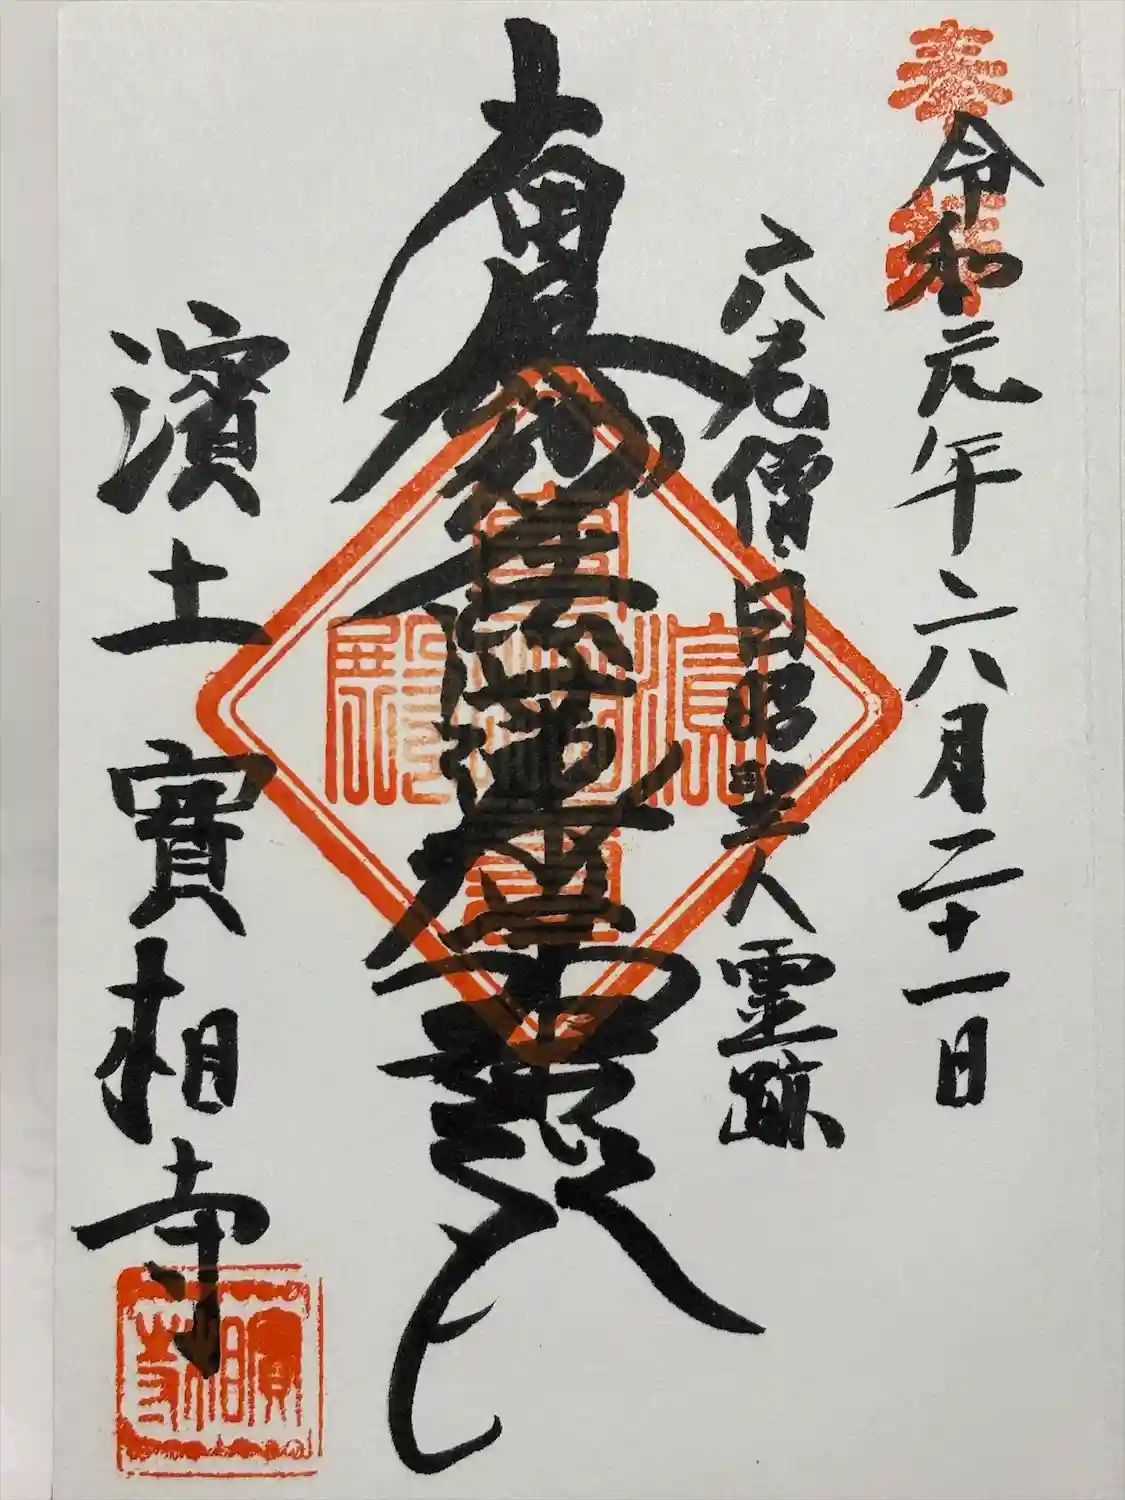 奉拝
令和元年六月二十一日
六老僧日昭聖人霊跡
南無妙法蓮華経
濱土實相寺
實相寺